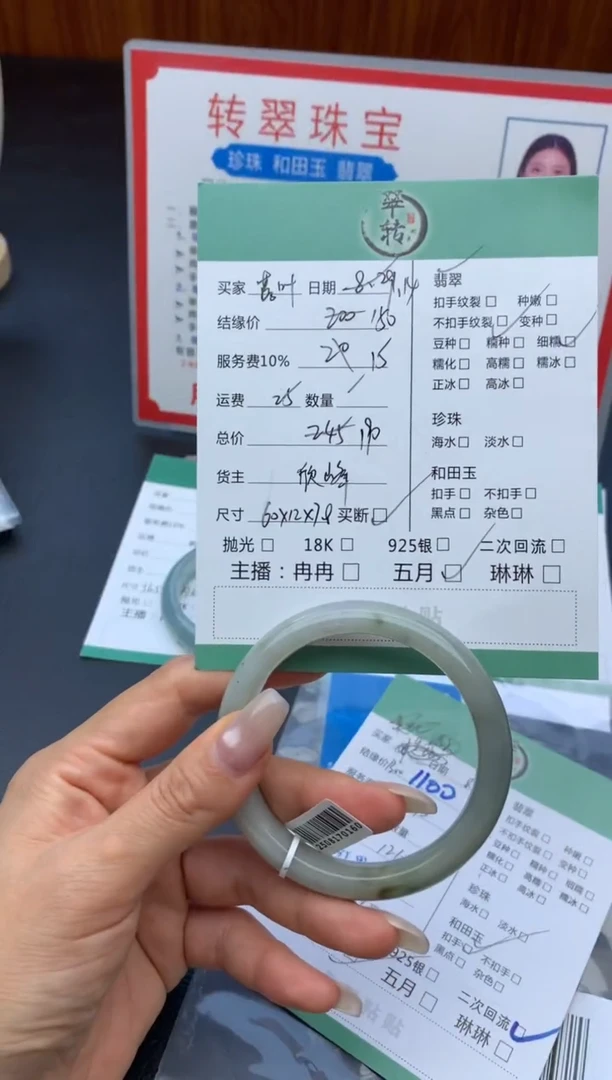 转翠珠宝
珍珠 和田玉 翡翠
翠转
买家 日期 8.29.14
结缘价 200 150
服务费10% 20 15
运费 25 数量
总价 245 190
货主 欣峰
尺寸 60X12X7.9 买断□
翡翠
扣手纹裂□ 种嫩□
不扣手纹裂□ 变种□
豆种□ 糯种□ 细糯□
糯化□ 高糯□ 糯冰□
正冰□ 高冰□
珍珠
海水□ 淡水□
和田玉
扣手□ 不扣手□
黑点□ 杂色□
抛光□ 18K□ 925银□ 二次回流□
主播：冉冉□ 五月□ 琳琳□
贴
2508170160
尺寸
主播
买家
结缘价 1100
翡翠
扣手纹裂□ 种嫩□
不扣手纹裂□ 变种□
豆种□ 糯种□ 细糯□
糯化□ 高糯□ 糯冰□
正冰□ 高冰□
珍珠
海水□ 淡水□
和田玉
扣手□ 不扣手□
黑点□ 杂色□
925银□ 二次回流□
五月□ 琳琳□
粘贴